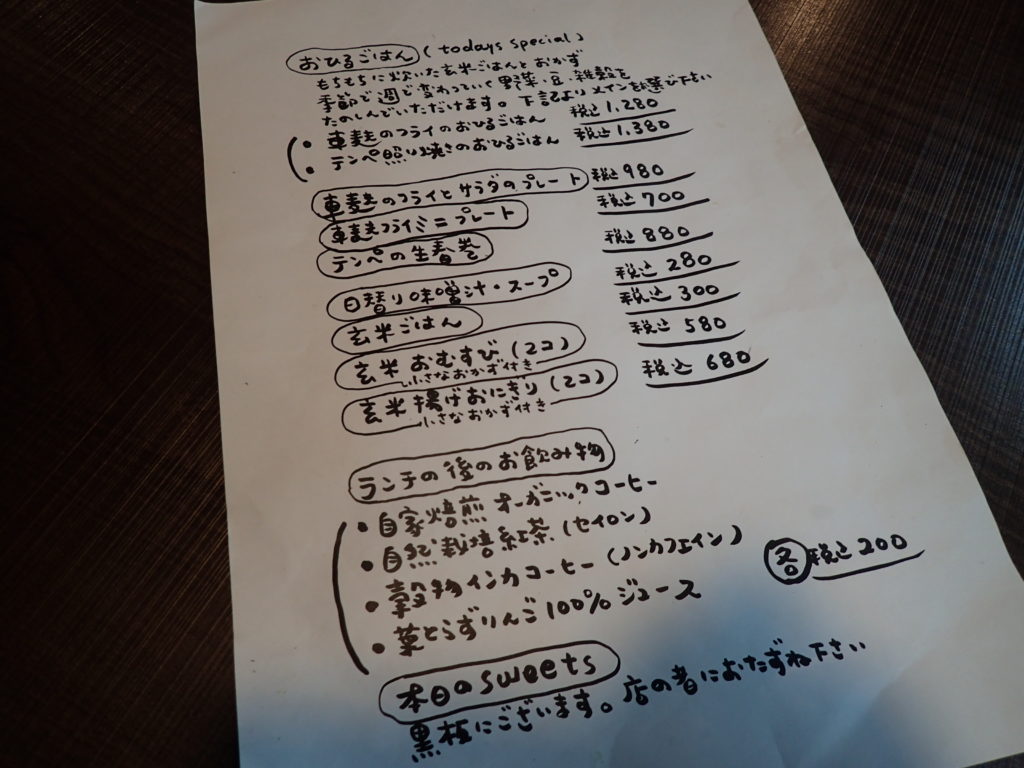 おひるごはん (todays special)
もちもちに炊いた玄米ごはんとおかず
季節で週で変わっていく野菜・豆・雑穀を
たのしんでいただけます。下記よりメインを選び下さい
・車麩のフライのおひるごはん 税込1,280
・テンペ照り焼きのおひるごはん 税込1,380
車麩のフライとサラダのプレート 税込980
車麩フライミニプレート 税込700
テンペの生春巻 税込880
日替り味噌汁・スープ 税込280
玄米ごはん 税込300
玄米おむすび(2コ) 税込580
小さなおかず付き
玄米揚げおにぎり(2コ) 税込680
小さなおかず付き
ランチの後のお飲み物
・自家焙煎オーガニックコーヒー
・自然栽培紅茶(セイロン)
・穀物インカコーヒー(ノンカフェイン)
各税込200
・葉とらずりんご100%ジュース
本日のsweets
黒板にございます。店の者におたずね下さい